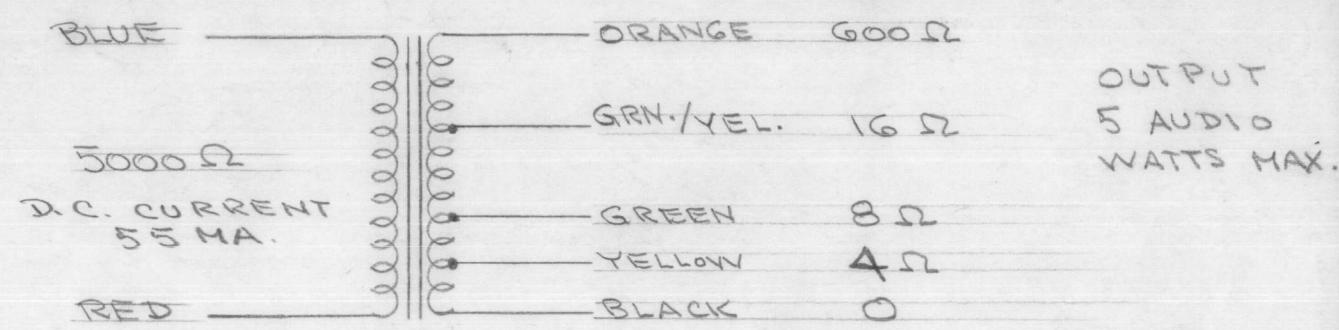 BLUE
5000 Ω
D.C. CURRENT
55 MA.
RED
ORANGE 600 Ω
GRN./YEL. 16 Ω
GREEN 8 Ω
YELLOW 4 Ω
BLACK 0
OUTPUT
5 AUDIO
WATTS MAX.